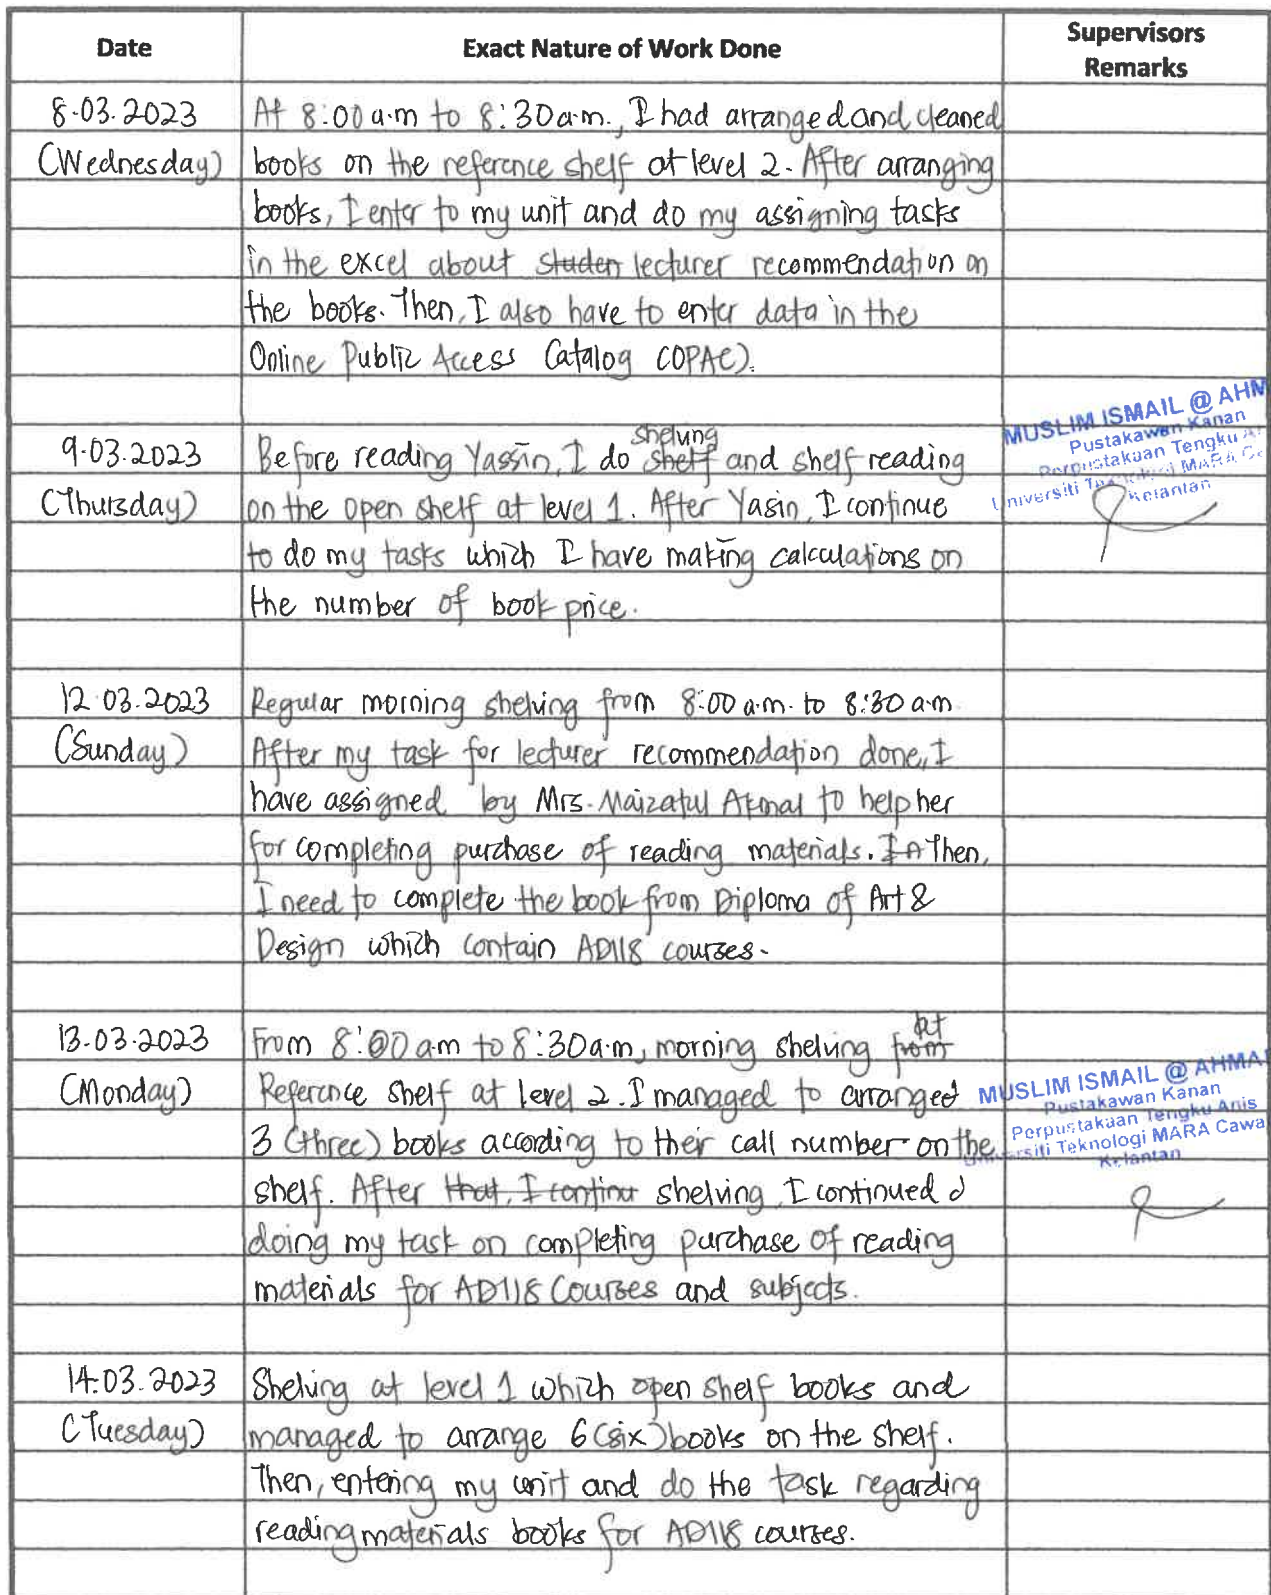 Date Exact Nature of Work Done Supervisors
Remarks
8.03.2023 At 8:00 a.m to 8:30 a.m., I had arranged and cleaned
(Wednesday) books on the reference shelf at level 2. After arranging
books, I enter to my unit and do my assigning tasks
in the excel about studen lecturer recommendation on
the books. Then, I also have to enter data in the
Online Public Access Catalog (OPAC).
MUSLIM ISMAIL @ AHM
Pustakawan Kanan
Perpustakaan Tengku A
Universiti Teknologi MARA C
Kelantan
shelving
9.03.2023 Before reading Yassin, I do shelf and shelf reading
(Thursday) on the open shelf at level 1. After Yasin, I continue
to do my tasks which I have making calculations on
the number of book price.
12.03.2023 Regular morning shelving from 8:00 a.m. to 8:30 a.m
(Sunday) After my task for lecturer recommendation done, I
have assigned by Mrs. Maizatul Akmal to help her
for completing purchase of reading materials. I A Then,
I need to complete the book from Diploma of Art &
Design which contain AD118 courses.
at
13.03.2023 From 8:00 a.m to 8:30 a.m, morning shelving from
(Monday) Reference shelf at level 2. I managed to arranged
3 (three) books according to their call number on the
shelf. After that, I continu shelving, I continued d
doing my task on completing purchase of reading
materials for AD118 Courses and subjects.
MUSLIM ISMAIL @ AHMA
Pustakawan Kanan
Perpustakaan Tengku Anis
Universiti Teknologi MARA Cawa
Kelantan
14.03.2023 Shelving at level 1 which open shelf books and
(Tuesday) managed to arrange 6 (six) books on the shelf.
Then, entering my unit and do the task regarding
reading materials books for AD118 courses.